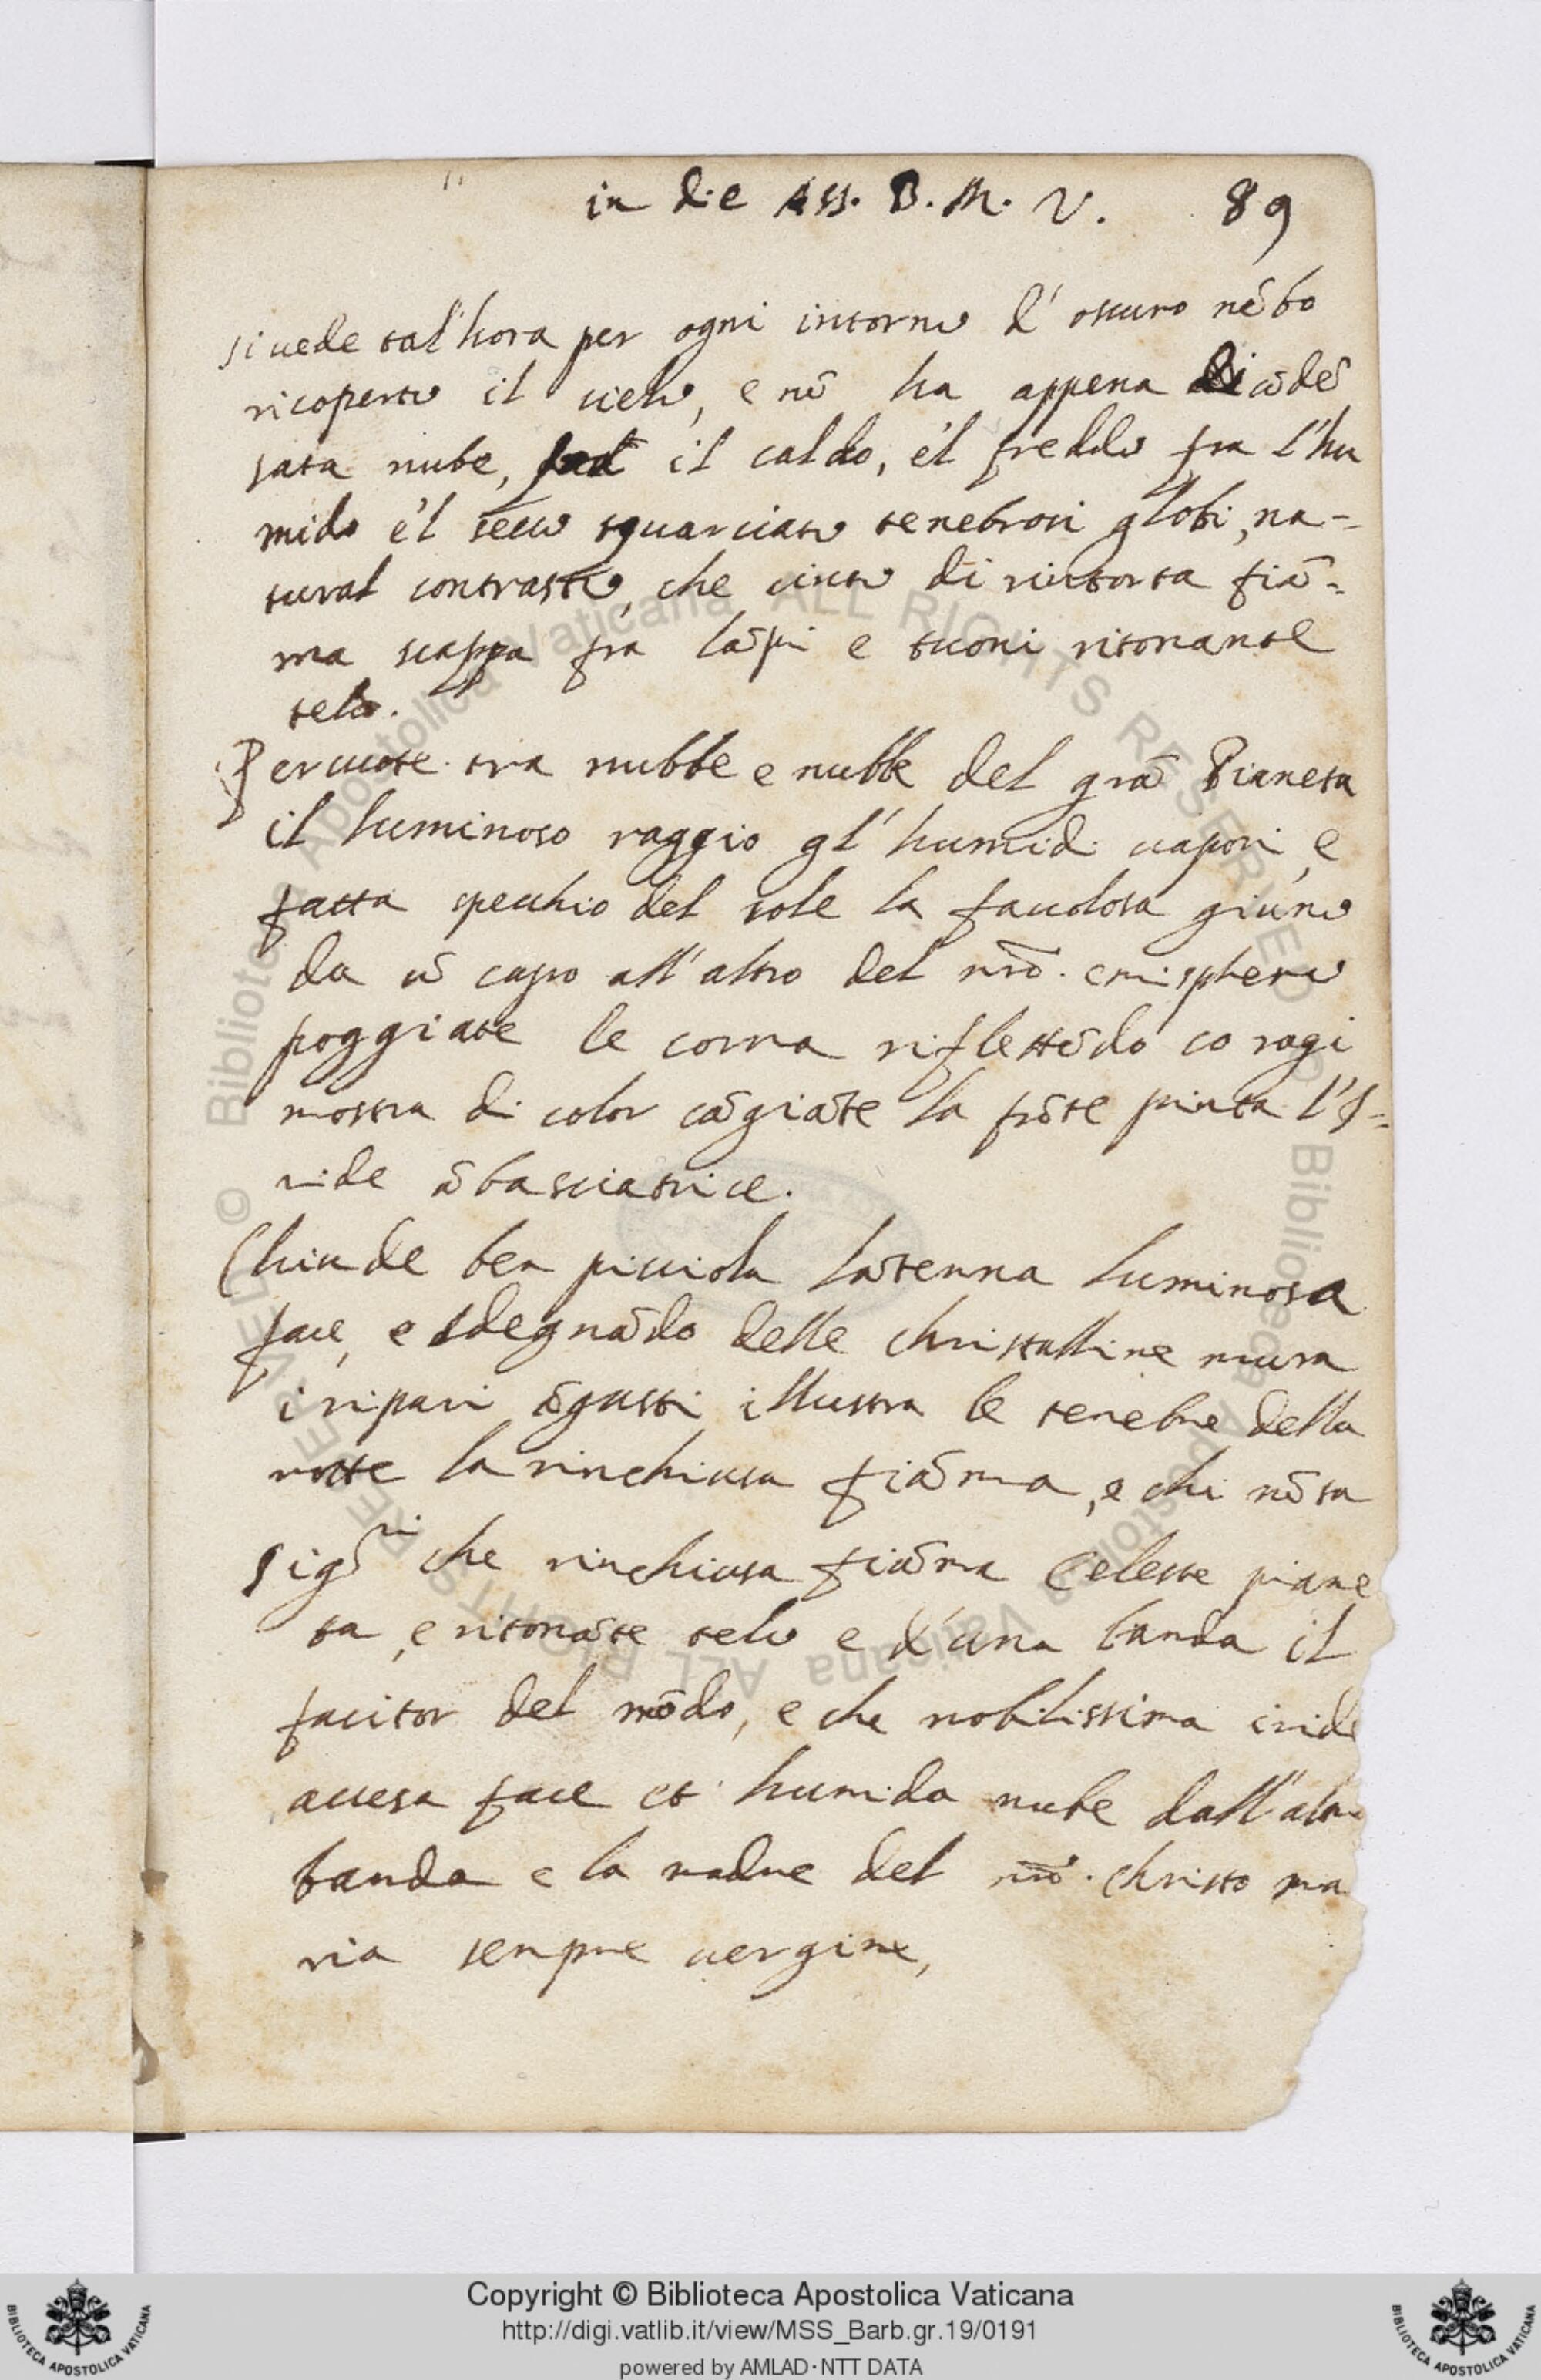 in die Ass. B. M. V. 89
si uede tal'hora per ogni intorno d'oscuro nẽbo
ricoperto il cielo, e nõ ha appena cõdẽ
sata nube, il caldo, e'l freddo fra l'hu
mido e'l secco squarciato tenebrosi globi, na-
tural contrasto, che cinto di ritorta fiã-
ma scappa fra lãpi e tuoni risonante
telo.
Percuote tra nubbe e nubbe del grã Pianeta
il luminoso raggio gl'humidi uapori, e
fatta specchio del sole la fauolosa giuno
da ũ capo all'altro del nrõ. emisphero
poggiate le corna riflettẽdo co ragi
mostra di color cãgiãte la frõte pinta l'I-
ride ãbasciatrice.
Chiude ben picciola lãterna luminosa
face, e sdegnãdo delle christalline mura
i ripari ãgusti illustra le tenebre della
notte la rinchiusa fiãma, e chi nõ sa
sig̃ri che rinchiusa fiãma Celeste piane
ta, e risonãte telo e d'una banda il
facitor del mõdo, e che nobilissima iride
accesa face et humida nube dall'altra
banda e la madre del nrõ. Christo ma
ria sempre uergine,
© Biblioteca Apostolica Vaticana ALL RIGHTS RESERVED
© Biblioteca Apostolica Vaticana ALL RIGHTS RESERVED
Copyright © Biblioteca Apostolica Vaticana
http://digi.vatlib.it/view/MSS_Barb.gr.19/0191
powered by AMLAD·NTT DATA
BIBLIOTECA APOSTOLICA VATICANA
BIBLIOTECA APOSTOLICA VATICANA